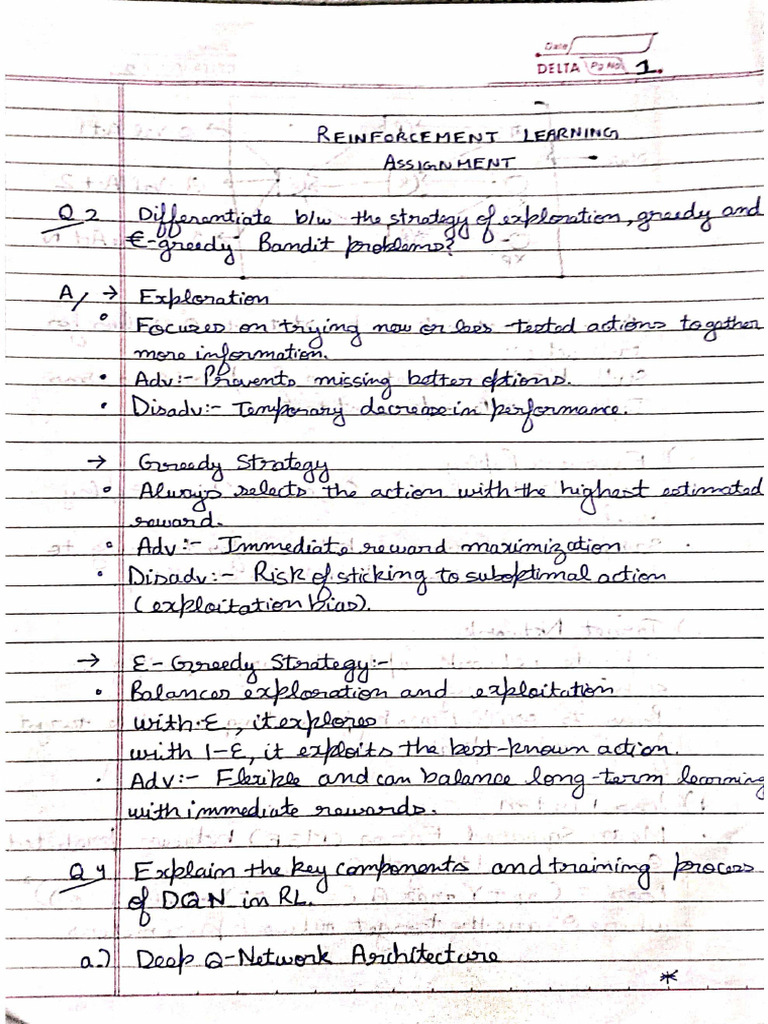 Date
DELTA Pg No 1.
REINFORCEMENT LEARNING
ASSIGNMENT
Q2 Differentiate b/w the strategy of exploration, greedy and
€-greedy Bandit problems?
A/ → Exploration
° Focuses on trying new or less-tested actions to gather
more information.
• Adv:- Prevents missing better options.
• Disadv:- Temporary decrease in performance.
→ Greedy Strategy
° Always selects the action with the highest estimated
reward.
° Adv:- Immediate reward maximization
• Disadv:- Risk of sticking to suboptimal action
(exploitation bias).
→ Ɛ-Greedy Strategy:-
• Balances exploration and exploitation
with Ɛ, it explores
with 1-Ɛ, it exploits the best-known action.
• Adv:- Flexible and can balance long-term learning
with immediate rewards.
Q4 Explain the key components and training process
of DQN in RL.
a.) Deep Q-Network Architecture
*